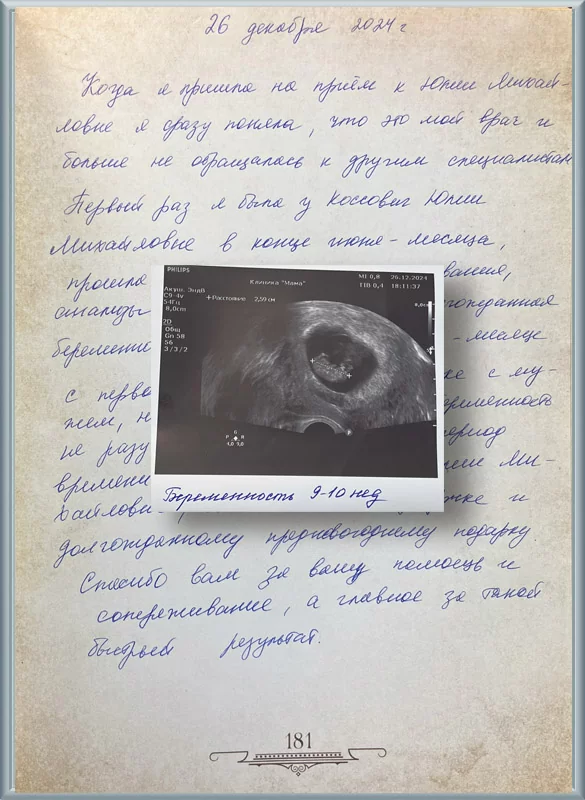 26 декабря 2024 г
Когда я пришла на приём к Юлии Михай-
ловне я сразу поняла, что это мой врач и
больше не обращалась к другим специалистам
Первый раз я была у Коссович Юлии
Михайловне в конце июня-месяца,
прошла
вания,
гожданная
беременн
-месяце
с перво
ке с му-
жем, н
еременность
не разу
ериод
времени
ии Ми-
хайлови
жке и
долгожданному предновогоднему подарку
Спасибо вам за вашу помощь и
сопереживание, а главное за такой
быстрый результат.
PHILIPS
Клиника "Мама"
MI 0,8 26.12.2024
TIB 0,4 18:11:37
Акуш. ЭндВ
C9-4v
54Гц
8,0cm
+Расстояние 2,59 см
2D
Общ
Gn 58
56
3/3/2
8,0
G
P R
4,0 9,0
Беременность 9-10 нед
181